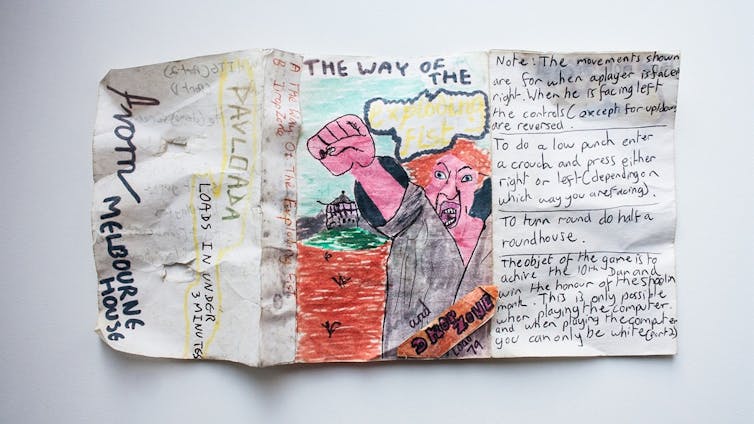 from MELBOURNE HOUSE
PAVLOADA
LOADS IN UNDER
3 MINUTES
A The Way Of The Exploding Fist
B Dropzone
THE WAY OF
THE
Exploding
Fist
and
DROP ZONE
Note: The movements shown
are for when a player is faceing
right. When he is facing left
the controls (except for up/down)
are reversed.
To do a low punch enter
a crouch and press either
right or left (depending on
which way you are facing).
TO turn round do half a
roundhouse.
The objet of the game is to
achive the 10th Dan and
win the honour of the shaolin
monk. This is only possible
when playing the computer
and when playing the computer
you can only be white